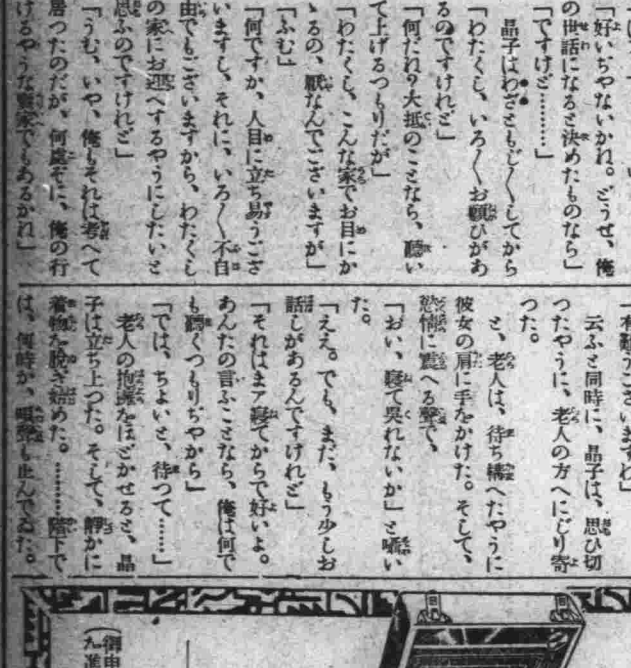 「好いぢやないかれ。どうせ、俺
の世話になると決めたものなら」
「ですけど…………」
晶子はわざともじ〳〵してから
「わたくし、いろ〳〵お願ひがあ
るのですけれど」
「何だれ?大抵のことなら、聽い
て上げるつもりだが」
「わたくし、こんな家でお目にか
ゝるの、厭なんでございますが」
「ふむ」
「何ですか、人目に立ち易うござ
いますし、それに、いろ〳〵不自
由でもございますから、わたくし
の家にお運へするやうにしたいと
思ふのですけれど」
「うむ、いや、俺もそれは考へて
居つたのだが、何處ぞに、俺の行
けるやうな家でもあるかれ」
「有難うございますわ」
云ふと同時に、晶子は、思ひ切
つたやうに、老人の方へにじり寄
つた。
と、老人は、待ち構へたやうに
彼女の肩に手をかけた。そして、
慾情に震へる聲で、
「おい、寢て呉れないか」と囁い
た。
「ええ。でも、まだ、もう少しお
話しがあるんですけれど」
「それはまア寢てからで好いよ。
あんたの言ふことなら、俺は何で
も聽くつもりぢやから」
「では、ちよいと、待つて……」
老人の抱擁をほどかせると、晶
子は立ち上つた。そして、靜かに
着物を脱ぎ始めた。………階下で
は、何時か、唄聲も止んでゐた。